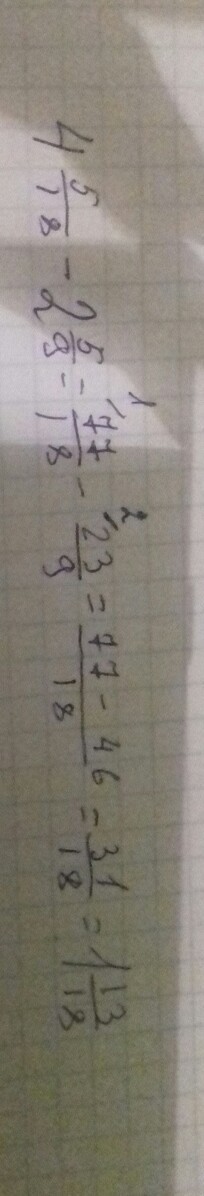 4 5/18 - 2 5/9 = 77/18 - 23/9 = (77 - 46)/18 = 31/18 = 1 13/18